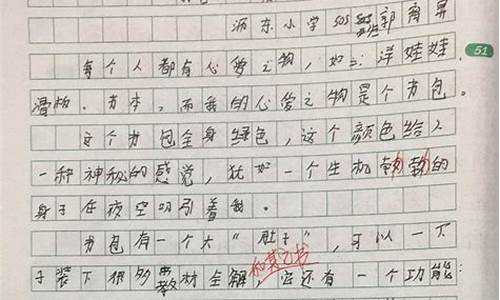 沥东小学505班郭育昇
51
每个人都有心爱之物,如:洋娃娃、
滑板、书本,而我的心爱之物是个书包。
这个书包全身绿色,这个颜色给人
一种神秘的感觉,犹如一个生机勃勃的
身于在夜空吸引着我。
书包有一个大“肚子”,可以一下
子装下很多教材全解和其它书它还有一个功能